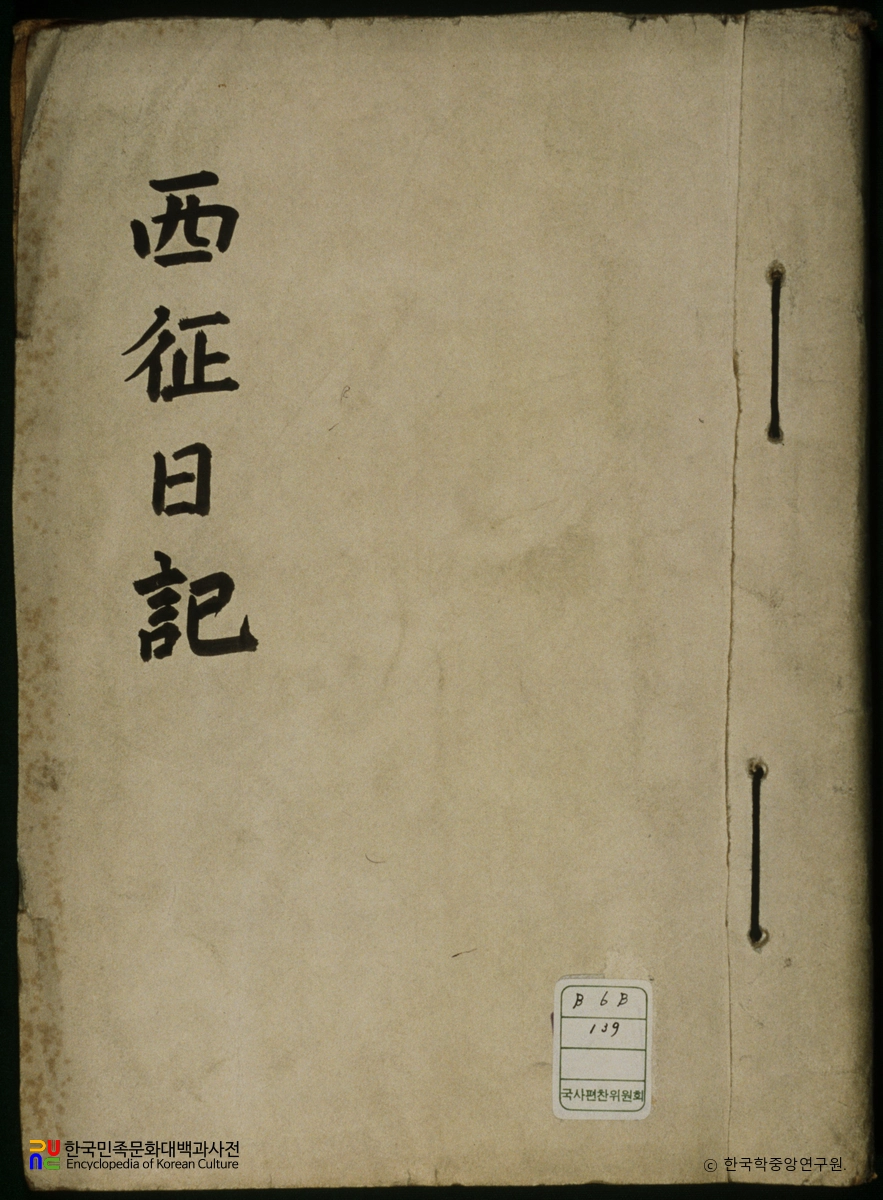 西征日記
B 6 B
139
국사편찬위원회
한국민족문화대백과사전
Encyclopedia of Korean Culture
© 한국학중앙연구원.